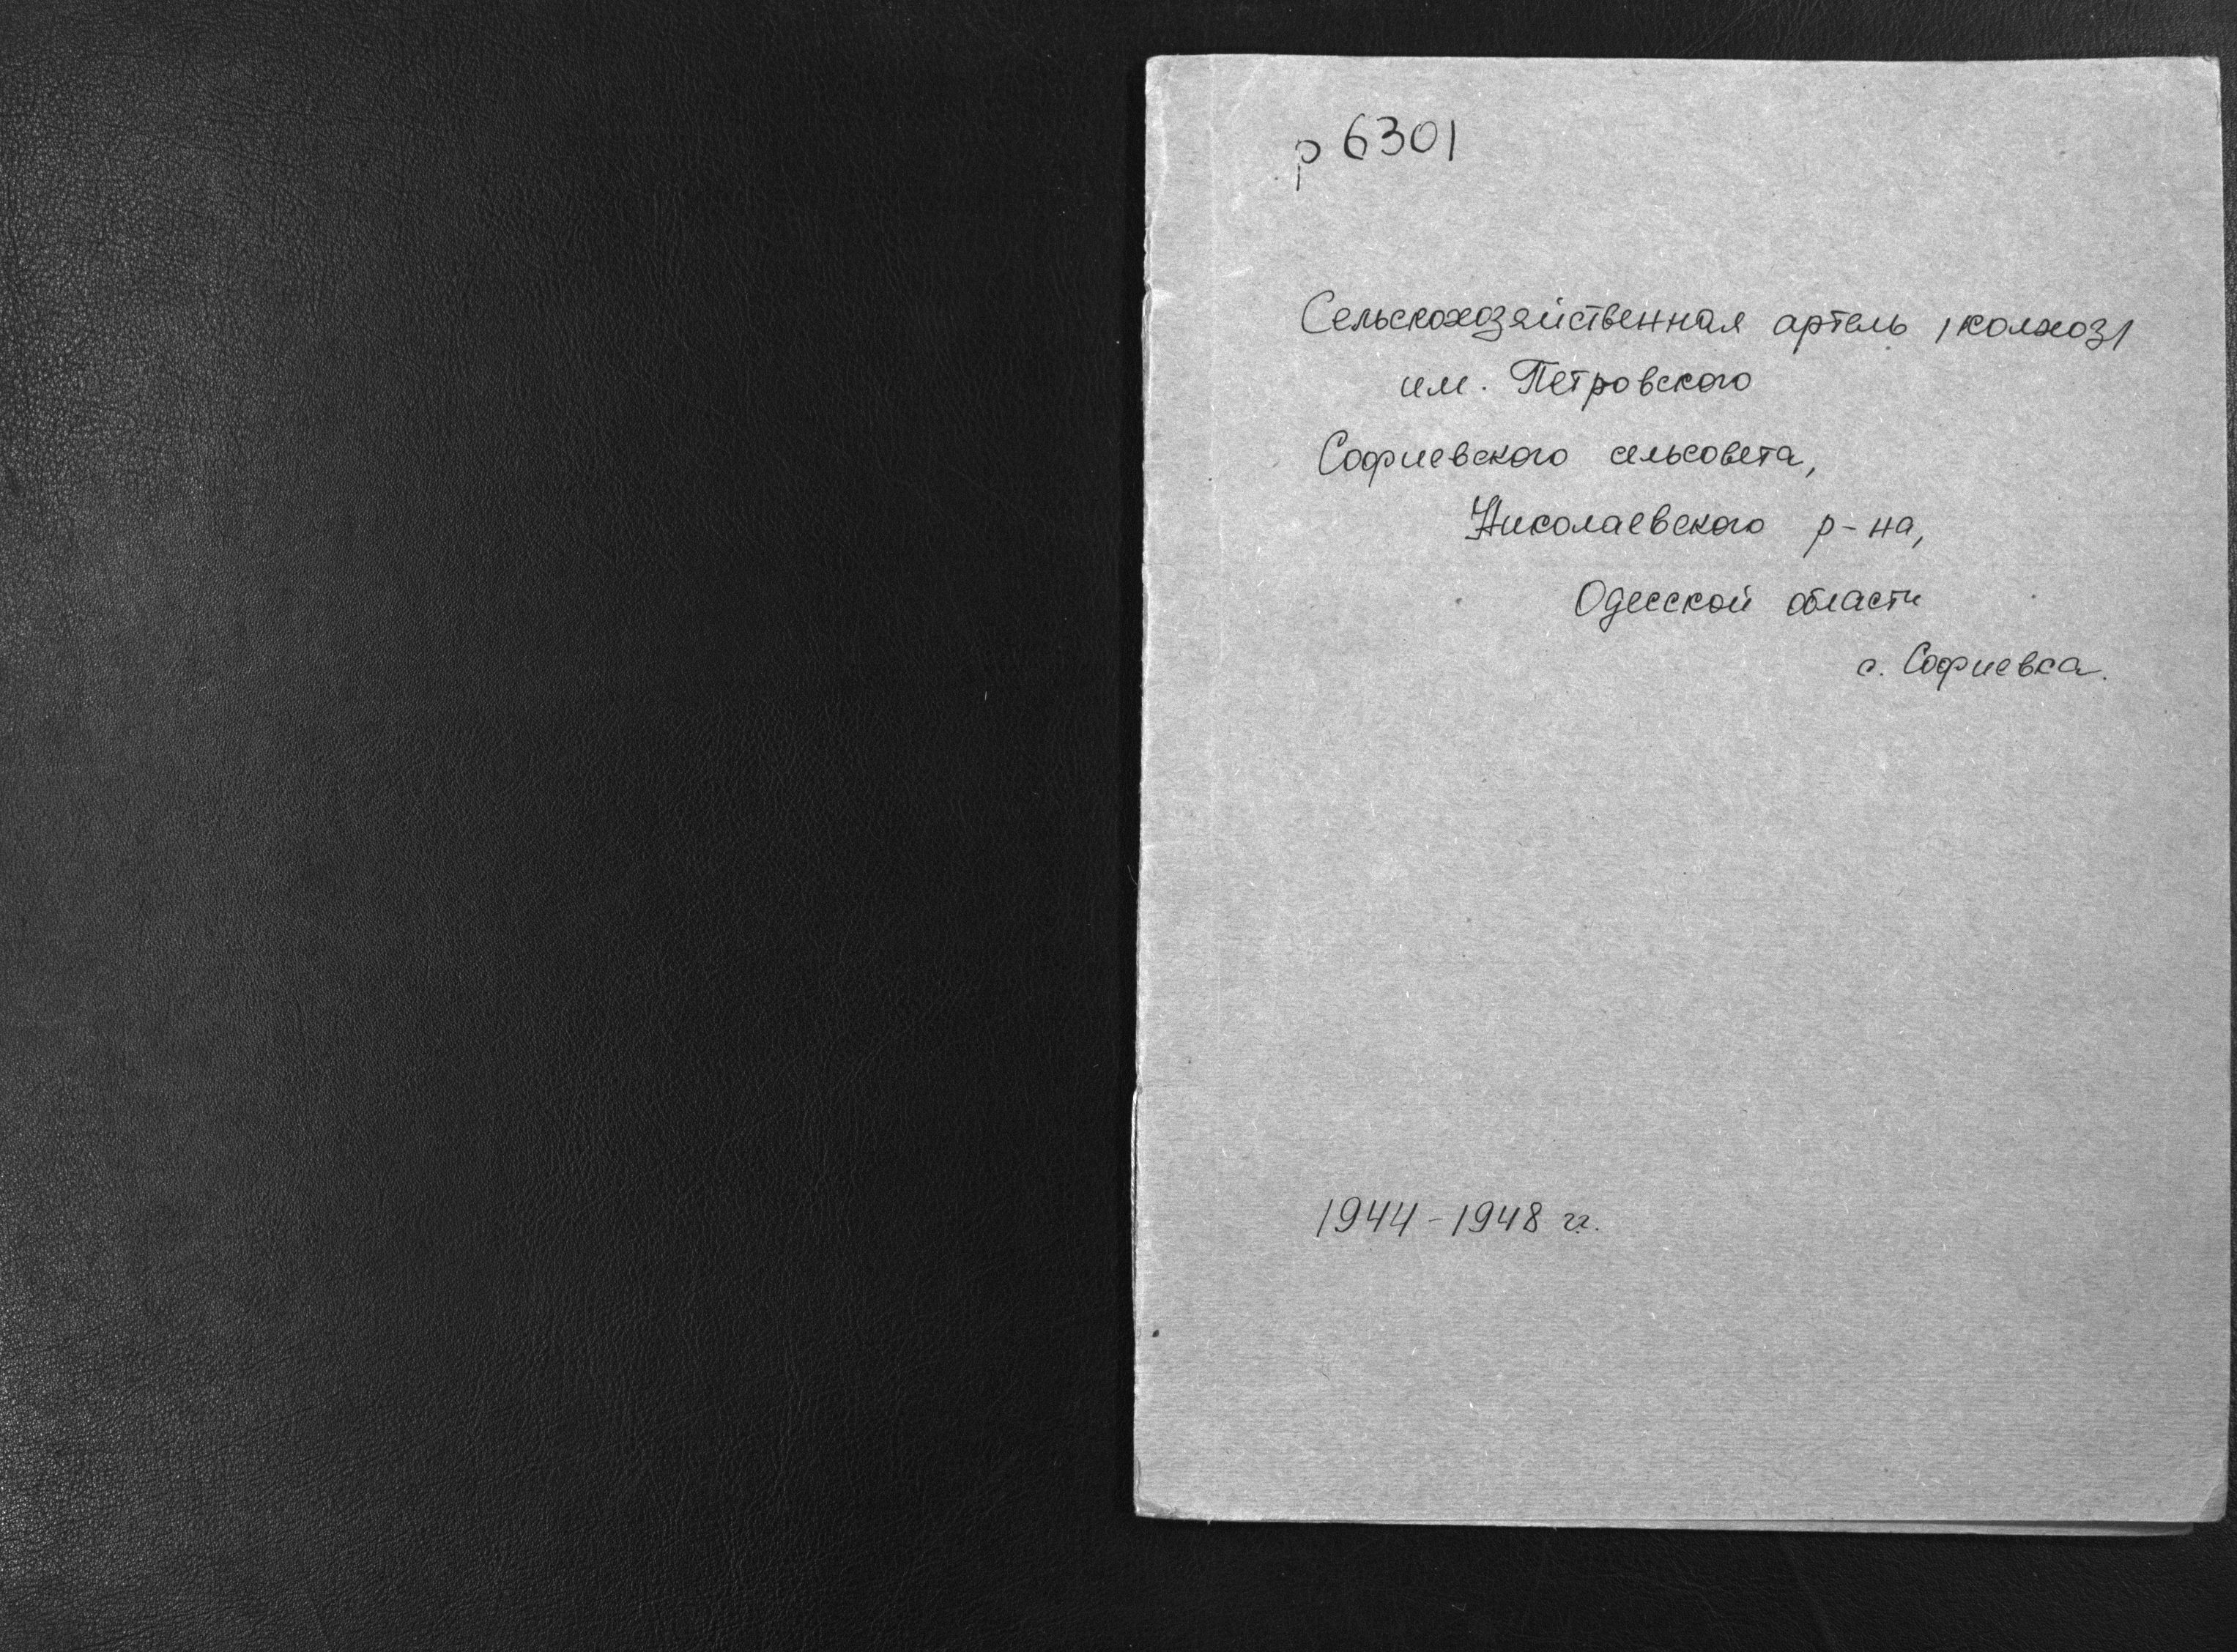 р 6301
Сельскохозяйственная артель /колхоз/
им. Петровского
Софиевского сельсовета,
Николаевского р-на,
Одесской области
с. Софиевка.
1944-1948 гг.